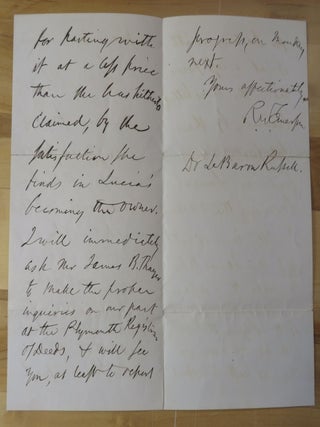 for parting with
it at a less price
than she has hitherto
claimed, by the
satisfaction she
finds in Lucia's
becoming the owner.
I will immediately
ask Mr James B. Thayer
to make the proper
inquiries on our part
at the Plymouth Registry
of Deeds, & will see
you, at least to report
progress, on Monday
next.
Yours affectionately
R.W. Emerson
Dr LeBaron Russell.